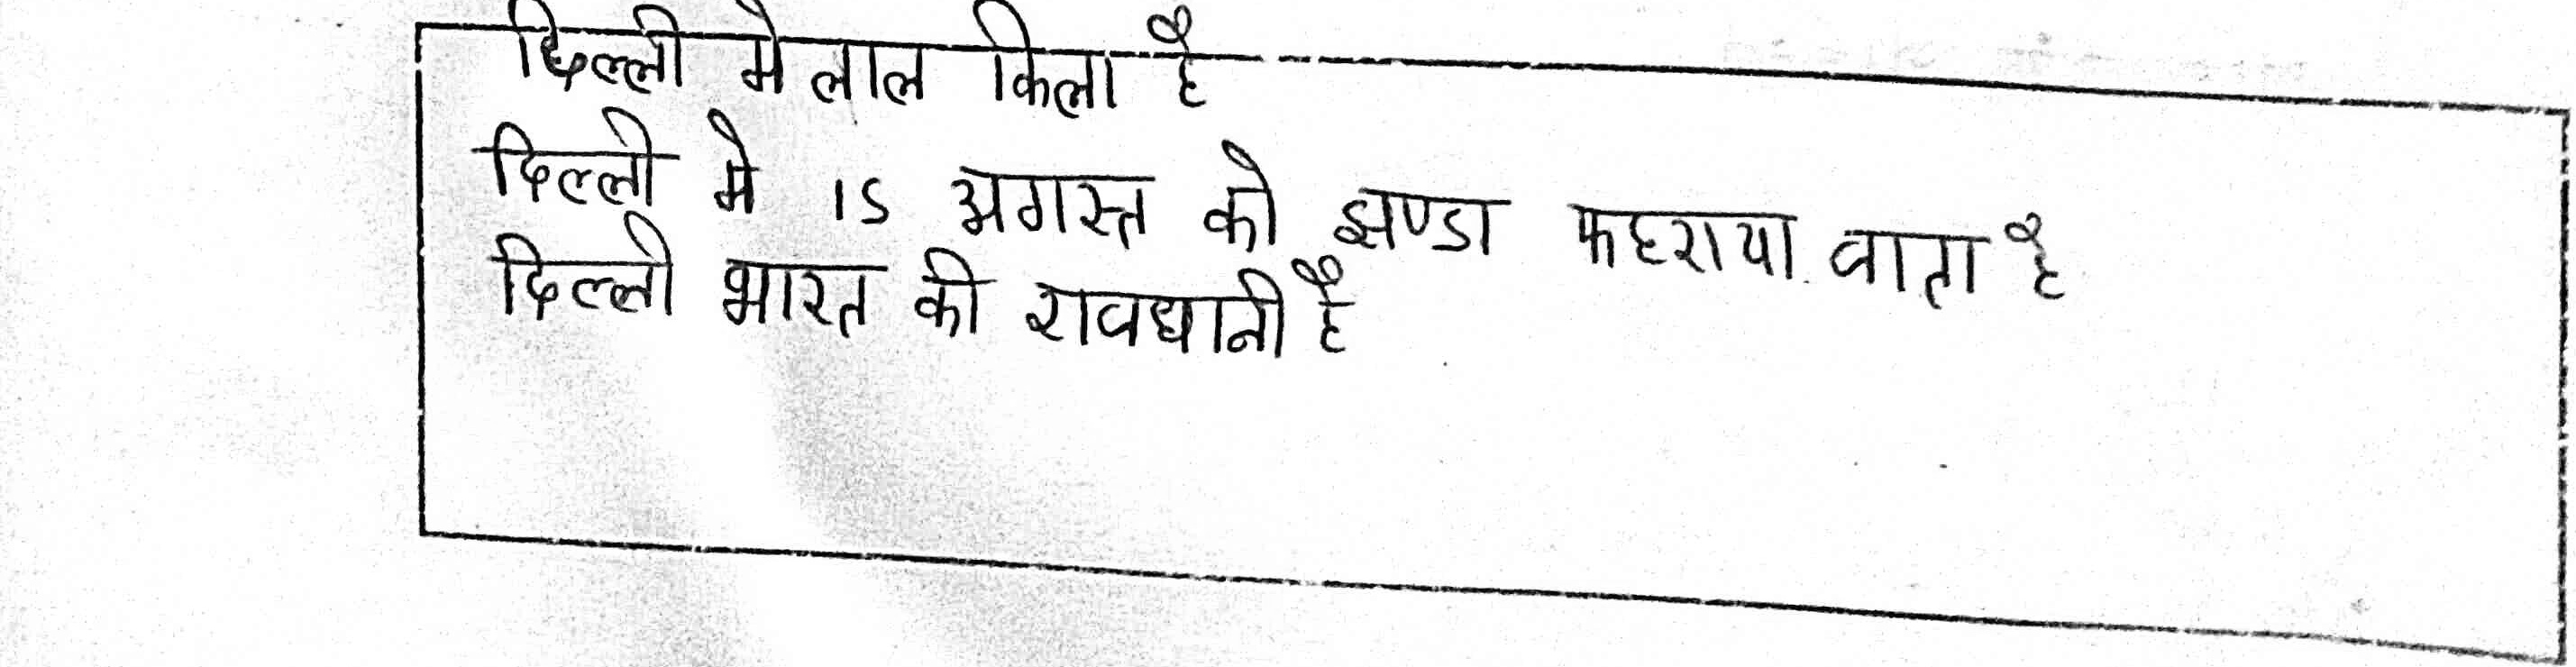 दिल्ली मे लाल किला है
दिल्ली मे 15 अगस्त को झण्डा फहराया जाता है
दिल्ली भारत की राजधानी है